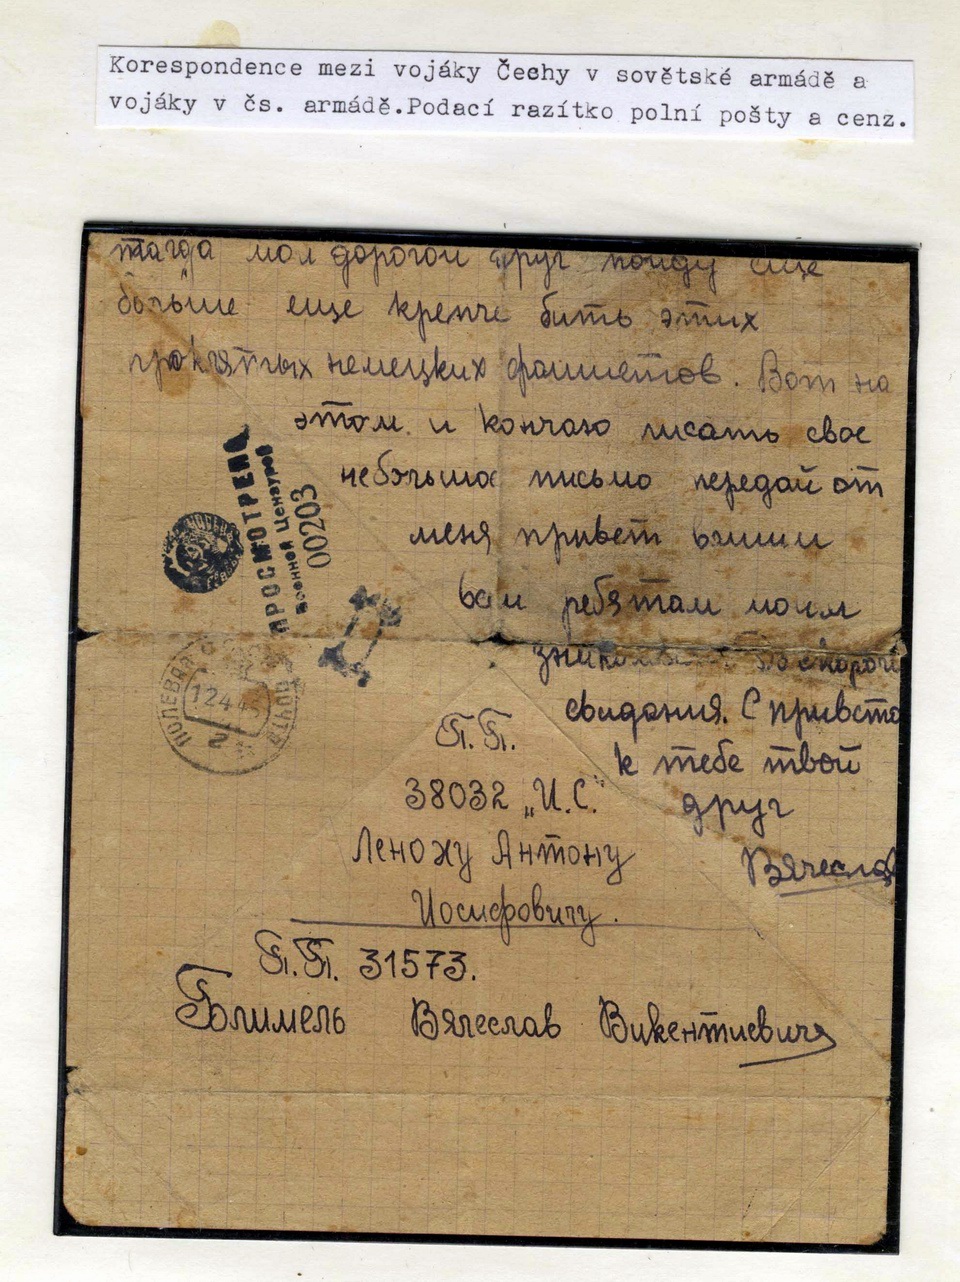 Korespondence mezi vojáky Čechy v sovětské armádě a
vojáky v čs. armádě.Podací razítko polní pošty a cenz.
тагда мол дорогой друг пойду еще
больше еще крепче бить этих
проклятых немецких фашистов. Вот на
этом и кончаю писать свое
небольшое письмо передай от
меня привет
ребятам моим
скорого
свидания. С приветом
к тебе твой
друг
Вячеслав
ПРОСМОТРЕНО
Военной Цензурой
00203
ПОЛЕВАЯ ПОЧТА
П.П.
38032 „И.С."
Леножу Антону
Иосифовичу.
П.П. 31573.
Вячеслав Викентиевича